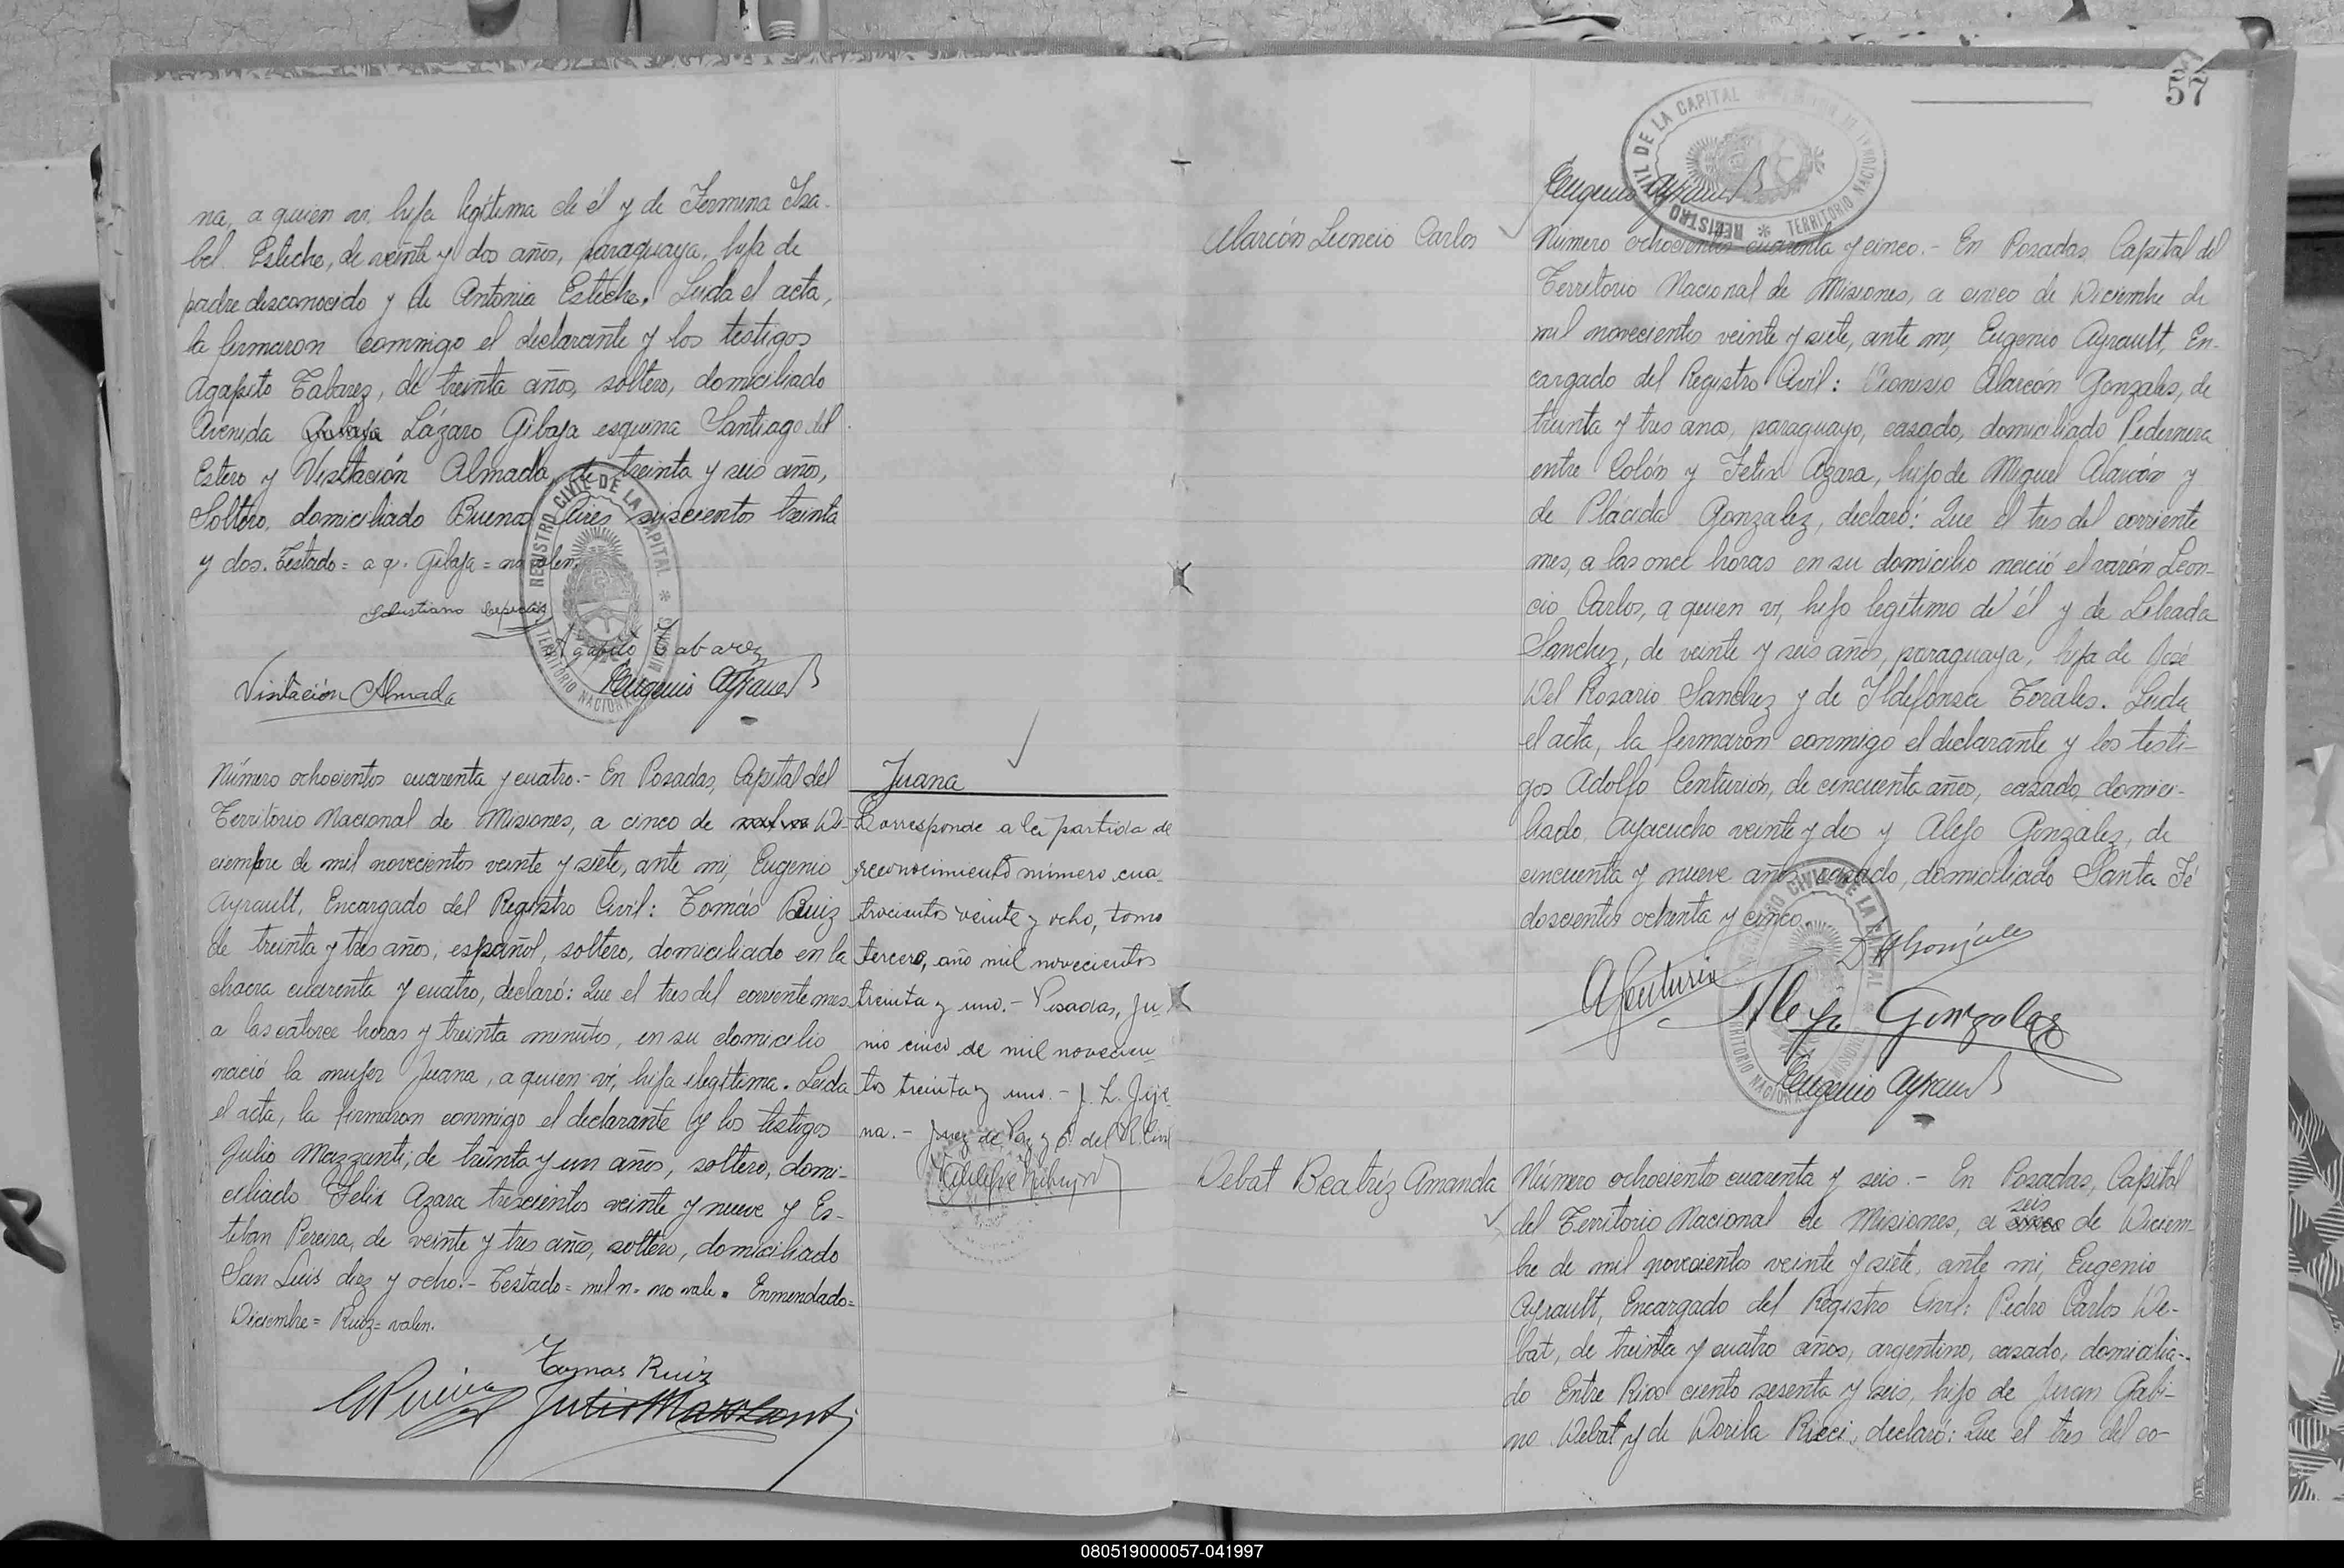 na, a quien vi, hija legítima de él y de Fermina Isa-
bel Esteche, de veinte y dos años, paraguaya, hija de
padre desconocido y de Antonia Esteche. Leida el acta,
la firmaron conmigo el declarante y los testigos
Agapito Tabarez, de treinta años, soltero, domiciliado
Avenida Lázaro Gibaja esquina Santiago del
Estero y Visitación Almada, de treinta y seis años,
Soltero, domiciliado Buenos Aires seiscientos treinta
y dos. Testado = a q. Gibaja = no valen.
Agapito Tabarez
Visitación Almada
Eugenio Ayrault
REGISTRO CIVIL DE LA CAPITAL * TERRITORIO NACIONAL MISIONES
Número ochocientos cuarenta y cuatro.- En Posadas, Capital del
Territorio Nacional de Misiones, a cinco de Di-
ciembre de mil novecientos veinte y siete, ante mi, Eugenio
Ayrault, Encargado del Registro Civil: Tomás Ruiz
de treinta y tres años, español, soltero, domiciliado en la
chacra cuarenta y cuatro, declaró: Que el tres del corriente mes
a las catorce horas y treinta minutos, en su domicilio
nació la mujer Juana, a quien vi, hija ilegítima. Leida
el acta, la firmaron conmigo el declarante y los testigos
Julio Mazzanti, de treinta y un años, soltero, domi-
ciliado Felix Azara trescientos veinte y nueve y Es-
teban Pereira, de veinte y tres años, soltero, domiciliado
San Luis diez y ocho.- Testado = mil n. no vale. Enmendado =
Diciembre = Ruiz = valen.
Tomas Ruiz
Julio Mazzanti
Juana
Corresponde a la partida de
reconocimiento número cua-
trocientos veinte y ocho, tomo
tercero, año mil novecientos
treinta y uno.- Posadas, Ju-
nio cinco de mil novecien-
tos treinta y uno.-
na.- Juez de Paz y E. del R. Civil
57
REGISTRO CIVIL DE LA CAPITAL * TERRITORIO NACIONAL
Eugenio Ayrault
Alarcón Leoncio Carlos
Número ochocientos cuarenta y cinco.- En Posadas, Capital del
Territorio Nacional de Misiones, a cinco de Diciembre de
mil novecientos veinte y siete, ante mi, Eugenio Ayrault, En-
cargado del Registro Civil: Dionisio Alarcón Gonzales, de
treinta y tres años, paraguayo, casado, domiciliado Pedernera
entre Colón y Felix Azara, hijo de Miguel Alarcón y
de Plácida Gonzalez, declaró: Que el tres del corriente
mes, a las once horas en su domicilio nació el varón Leon-
cio Carlos, a quien vi, hijo legítimo de él y de Librada
Sanchez, de veinte y seis años, paraguaya, hija de José
Del Rosario Sanchez y de Ildefonsa Torales. Leida
el acta, la firmaron conmigo el declarante y los testi-
gos Adolfo Centurión, de cincuenta años, casado, domici-
liado Ayacucho veinte y dos y Alejo Gonzalez, de
cincuenta y nueve años, casado, domiciliado Santa Fé
doscientos ochenta y cinco.
A Centurión
Alejo Gonzalez
Eugenio Ayrault
Debat Beatríz Amanda
Número ochociento cuarenta y seis.- En Posadas, Capital
seis
del Territorio Nacional de Misiones, a cinco de Diciem-
bre de mil novecientos veinte y siete, ante mi, Eugenio
Ayrault, Encargado del Registro Civil: Pedro Carlos De-
bat, de treinta y cuatro años, argentino, casado, domicilia-
do Entre Rios ciento sesenta y seis, hijo de Juan Gabi-
no Debat y de Dorila Ricci, declaró: Que el tres del co-
080519000057-041997